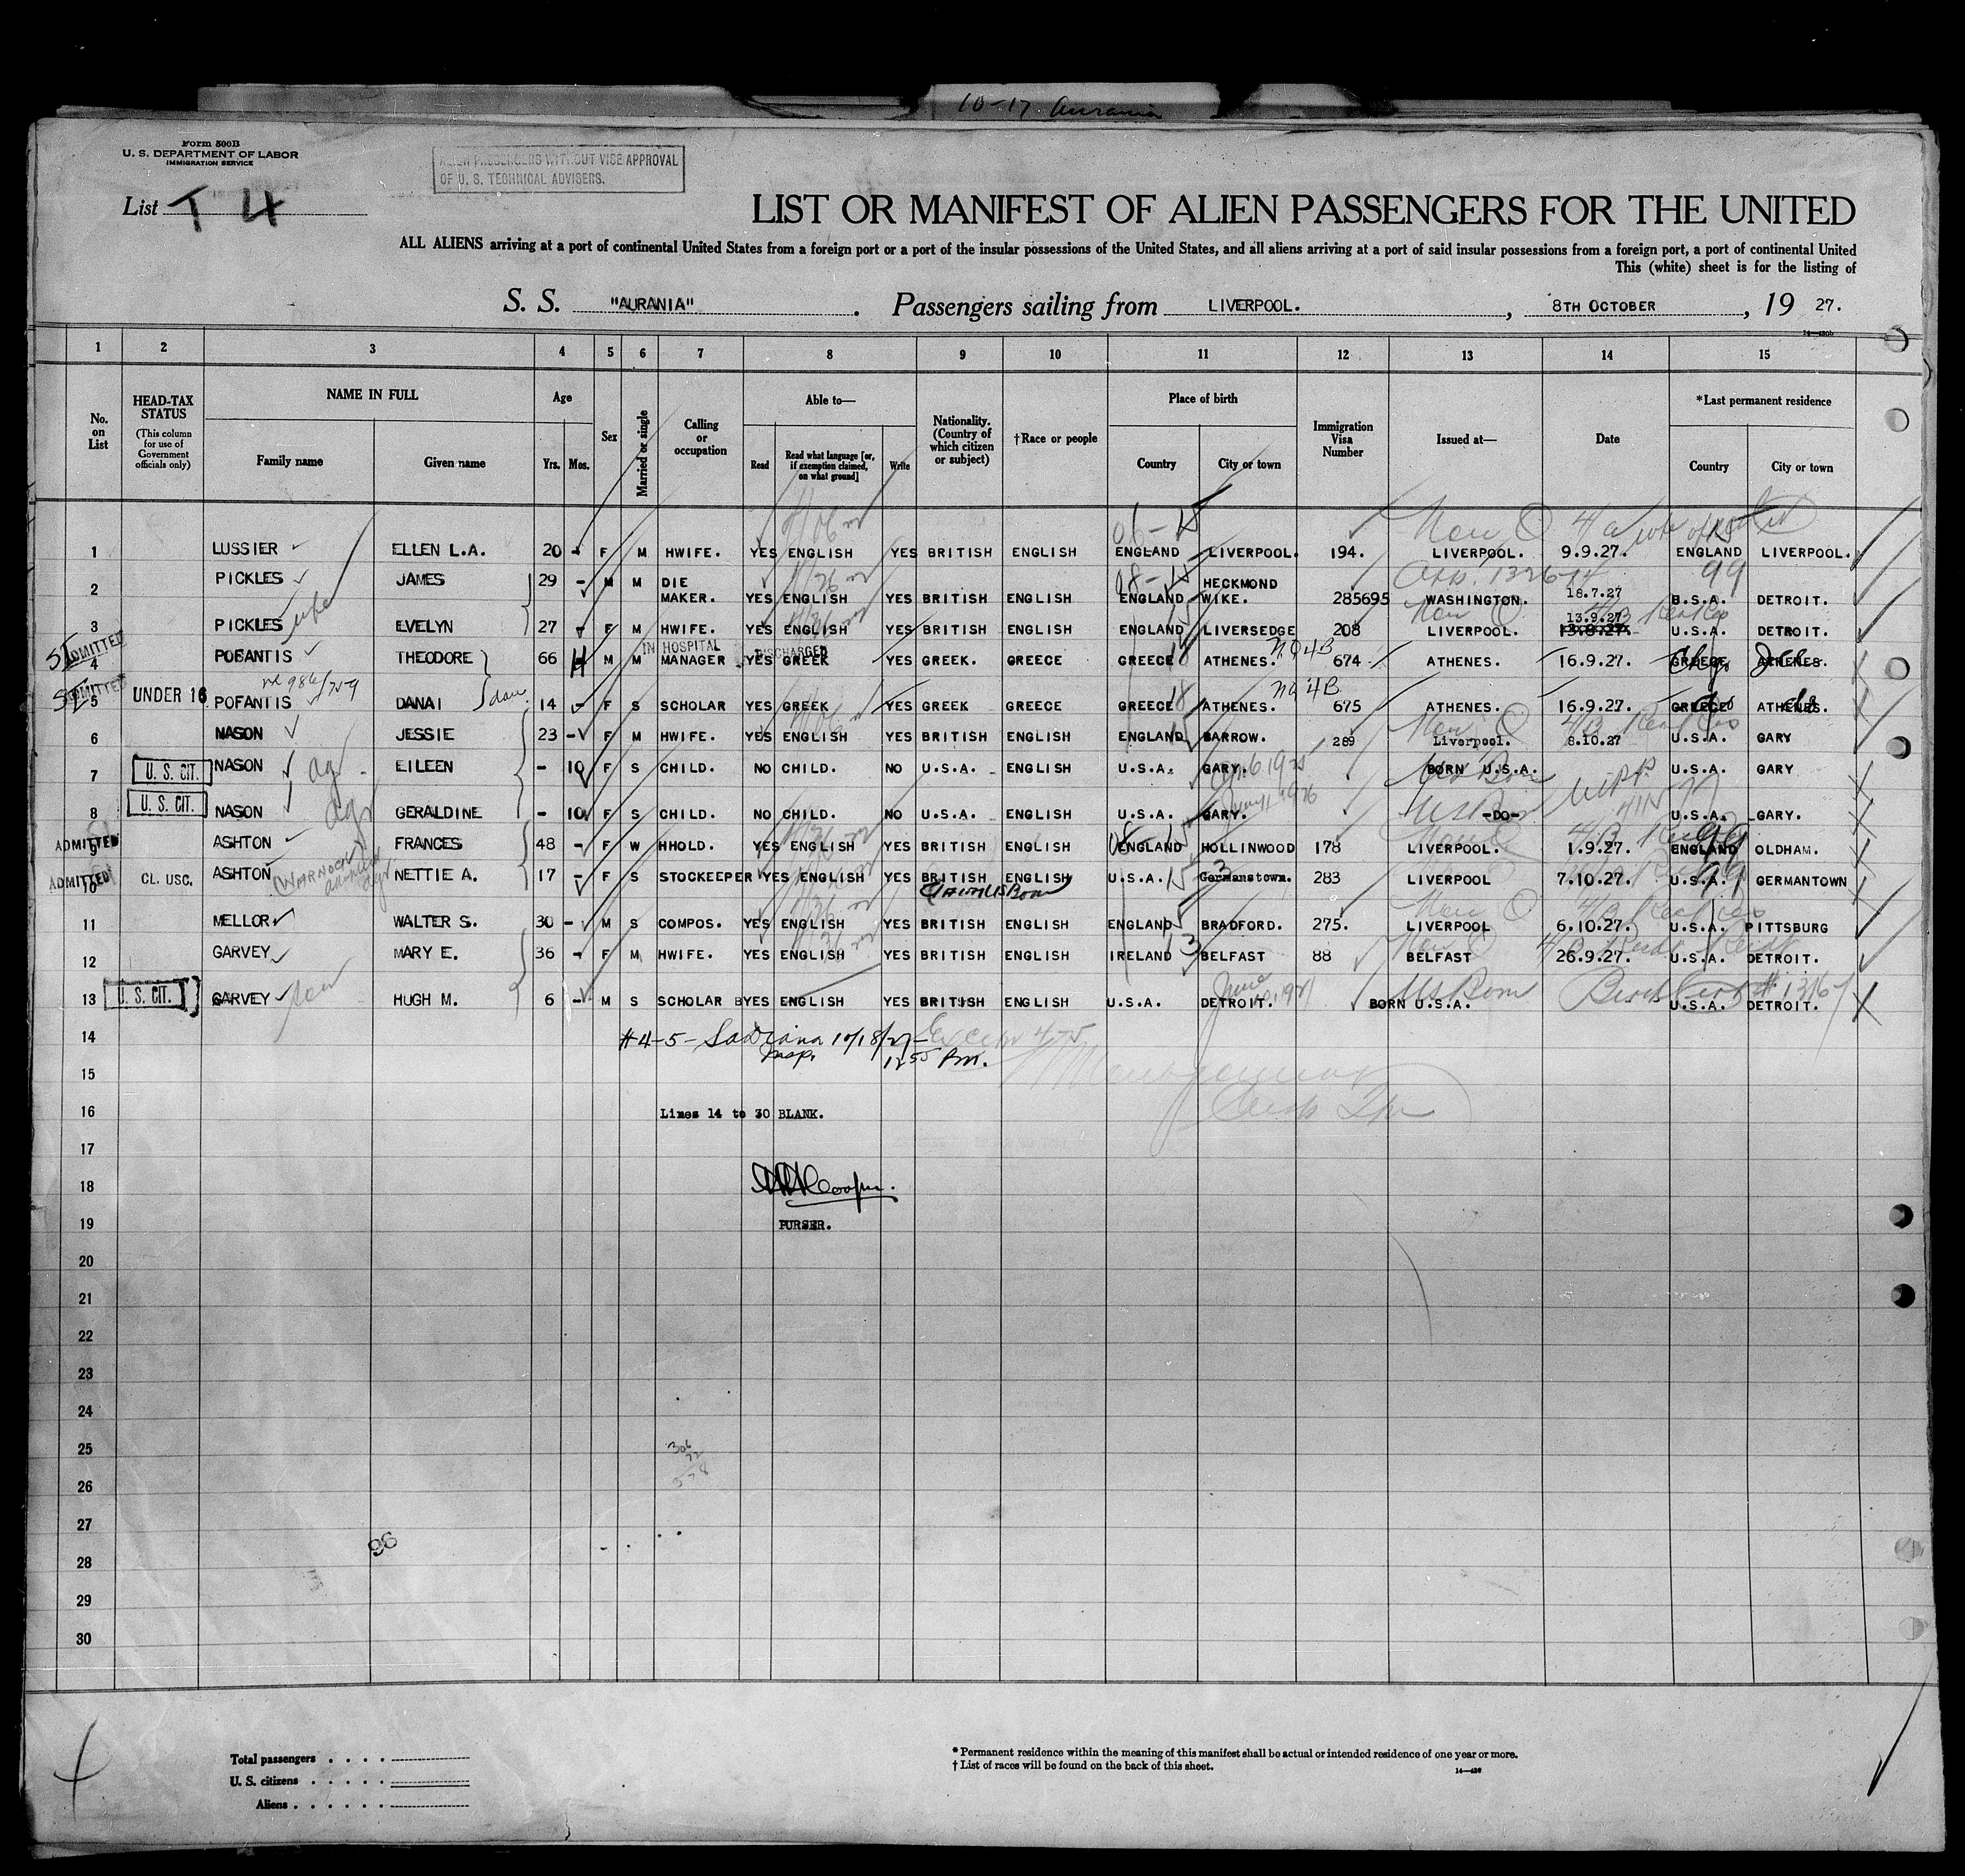 10-17 Aurania
Form 500B
U. S. DEPARTMENT OF LABOR
IMMIGRATION SERVICE
ALIEN PASSENGERS WITHOUT VICE APPROVAL
OF U. S. TECHNICAL ADVISERS.
List T 4
LIST OR MANIFEST OF ALIEN PASSENGERS FOR THE UNITED
ALL ALIENS arriving at a port of continental United States from a foreign port or a port of the insular possessions of the United States, and all aliens arriving at a port of said insular possessions from a foreign port, a port of continental United
This (white) sheet is for the listing of
S. S. "AURANIA". Passengers sailing from LIVERPOOL., 8TH OCTOBER, 19 27.
14-430b
1 2 3 4 5 6 7 8 9 10 11 12 13 14 15
No. on List
HEAD-TAX STATUS
(This column for use of Government officials only)
NAME IN FULL
Family name Given name
Age
Yrs. Mos.
Sex
Married or single
Calling or occupation
Able to—
Read Read what language [or, if exemption claimed, on what ground] Write
Nationality. (Country of which citizen or subject)
†Race or people
Place of birth
Country City or town
Immigration Visa Number
Issued at—
Date
*Last permanent residence
Country City or town
1 LUSSIER ELLEN L.A. 20 - F M HWIFE. YES ENGLISH YES BRITISH ENGLISH ENGLAND LIVERPOOL. 194. LIVERPOOL. 9.9.27. ENGLAND LIVERPOOL.
2 PICKLES JAMES 29 - M M DIE MAKER. YES ENGLISH YES BRITISH ENGLISH ENGLAND HECKMOND WIKE. 285695 WASHINGTON. 18.7.27 B.S.A. DETROIT.
99
3 PICKLES wife EVELYN 27 - F M HWIFE. YES ENGLISH YES BRITISH ENGLISH ENGLAND LIVERSEDGE 208 LIVERPOOL. 13.9.27 U.S.A. DETROIT.
ADMITTED IN HOSPITAL DISCHARGED
4 POFANTIS THEODORE 66 H M M MANAGER YES GREEK YES GREEK. GREECE GREECE ATHENES. 674 ATHENES. 16.9.27. GREECE ATHENES.
ADMITTED
5 UNDER 16 POFANTIS DANAI dau 14 - F S SCHOLAR YES GREEK YES GREEK GREECE GREECE ATHENES. 675 ATHENES. 16.9.27. GREECE ATHENES.
6 NASON JESSIE 23 - F M HWIFE. YES ENGLISH YES BRITISH ENGLISH ENGLAND BARROW. 289 Liverpool. 8.10.27 U.S.A. GARY
7 U. S. CIT. NASON EILEEN - 10 F S CHILD. NO CHILD. NO U.S.A. ENGLISH U.S.A. GARY. BORN U.S.A. U.S.A. GARY
8 U. S. CIT. NASON GERALDINE - 10 F S CHILD. NO CHILD. NO U.S.A. ENGLISH U.S.A. GARY. -DO- U.S.A. GARY.
ADMITTED
9 ASHTON FRANCES 48 - F W HHOLD. YES ENGLISH YES BRITISH ENGLISH ENGLAND HOLLINWOOD 178 LIVERPOOL. 1.9.27. ENGLAND OLDHAM.
ADMITTED
10 CL. USC. ASHTON NETTIE A. 17 - F S STOCKEEPER YES ENGLISH YES BRITISH ENGLISH U.S.A. Germanstown. 283 LIVERPOOL 7.10.27. U.S.A. GERMANTOWN
Claims US Born
11 MELLOR WALTER S. 30 - M S COMPOS. YES ENGLISH YES BRITISH ENGLISH ENGLAND BRADFORD. 275. LIVERPOOL 6.10.27. U.S.A. PITTSBURG
12 GARVEY MARY E. 36 - F M HWIFE. YES ENGLISH YES BRITISH ENGLISH IRELAND BELFAST 88 BELFAST 26.9.27. U.S.A. DETROIT.
13 U. S. CIT. GARVEY son HUGH M. 6 - M S SCHOLAR BYES ENGLISH YES BRITISH ENGLISH U.S.A. DETROIT. BORN U.S.A. U.S.A. DETROIT.
US Born
14 #4-5- 10/18/27
Insp. 12 55 Pm.
15
16 Lines 14 to 30 BLANK.
17
18 Cooper.
19 PURSER.
20
21
22
23
24
25 306
26
27
96
28
29
30
Total passengers
U. S. citizens
Aliens
* Permanent residence within the meaning of this manifest shall be actual or intended residence of one year or more.
† List of races will be found on the back of this sheet.
14-430